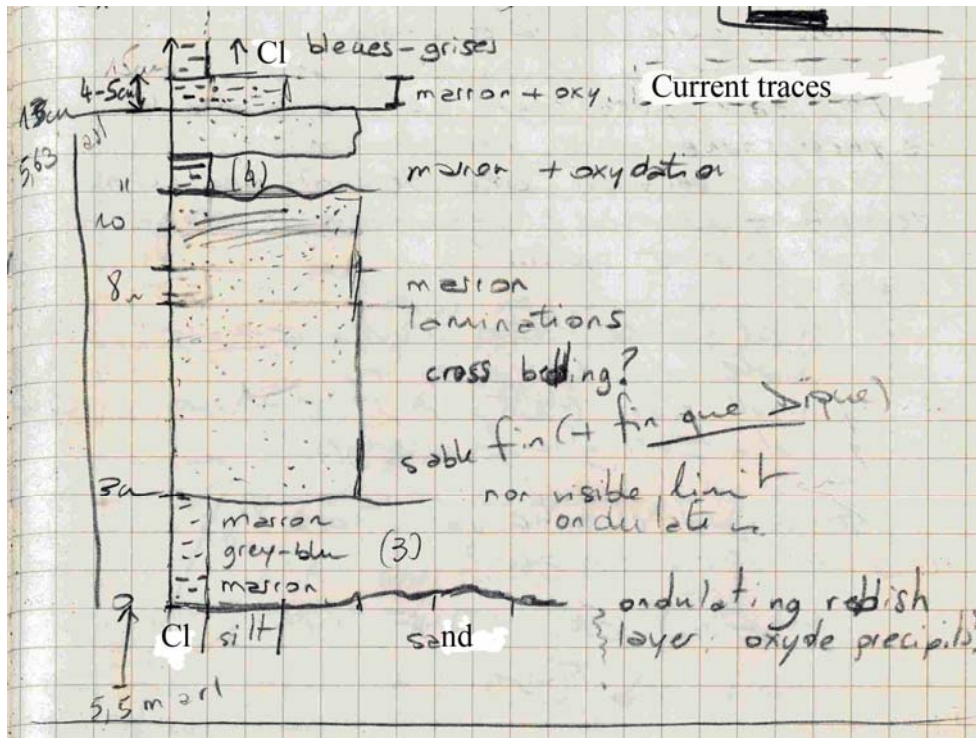 ↑ Cl bleues-grises
4-5cm
marron + oxy.
Current traces
13cm
5,63
asl
(4)
marron + oxydation
11
10
8
marron
laminations
cross bedding?
sable fin (+ fin que Dique)
3cm
non visible limit
ondulate
marron
grey-blu (3)
marron
0
ondulating redish
layer. oxyde precipit
Cl silt sand
5,5 m asl